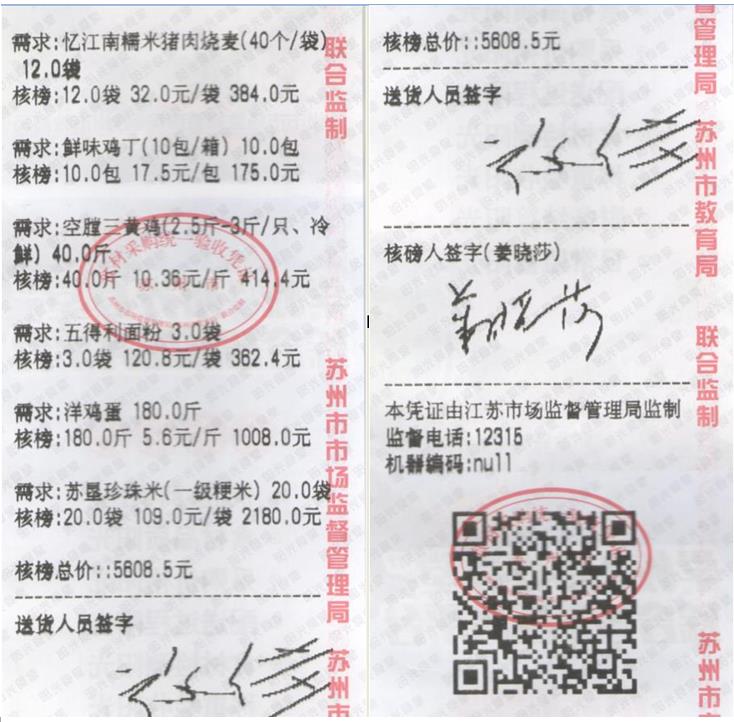 需求:忆江南糯米猪肉烧麦(40个/袋)
12.0袋
核榜:12.0袋 32.0元/袋 384.0元
需求:鲜味鸡丁(10包/箱) 10.0包
核榜:10.0包 17.5元/包 175.0元
需求:空膛三黄鸡(2.5斤-3斤/只、冷
鲜) 40.0斤
核榜:40.0斤 10.36元/斤 414.4元
需求:五得利面粉 3.0袋
核榜:3.0袋 120.8元/袋 362.4元
需求:洋鸡蛋 180.0斤
核榜:180.0斤 5.6元/斤 1008.0元
需求:苏垦珍珠米(一级粳米) 20.0袋
核榜:20.0袋 109.0元/袋 2180.0元
核榜总价::5608.5元
送货人员签字
联合监制
苏州市市场监督管理局
苏州市
核榜总价::5608.5元
送货人员签字
核磅人签字(姜晓莎)
姜晓莎
本凭证由江苏市场监督管理局监制
监督电话:12315
机器编码:null
督管理局
苏州市教育局
联合监制
苏州市